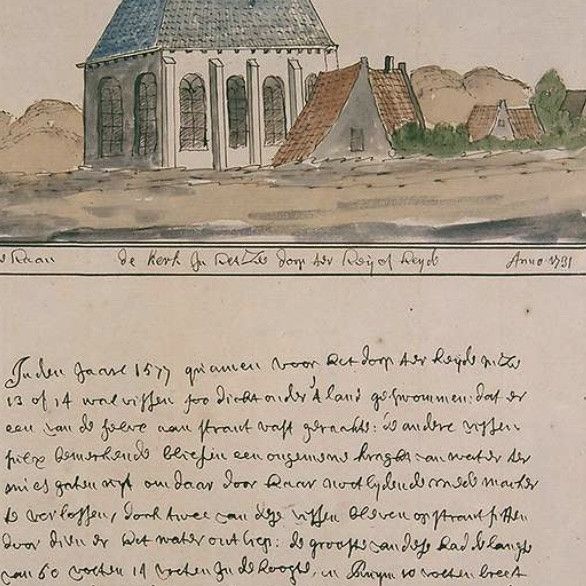 de kerk In het Zee dorp ter Heij of Heyde Anno 1731
In den Jaare 1577 quamen voor het dorp ter Heyde in Zee
13 of 14 walvissen soo dicht onder 't land geswommen: dat er
een van de selve aan strant vast geraakte: de andere vissen
sulx bemerkende bliesen een ongemene kragt van water ter
neus gaten uyt om daar door haar nootlydende mede macker
te verlossen, doch twee van dese vissen bleven op strant sitten
door dien er het water ont liep: de grootste van dese had de langte
van 60 voeten 14 voeten In de hoogte, en Ruym 10 voeten breet